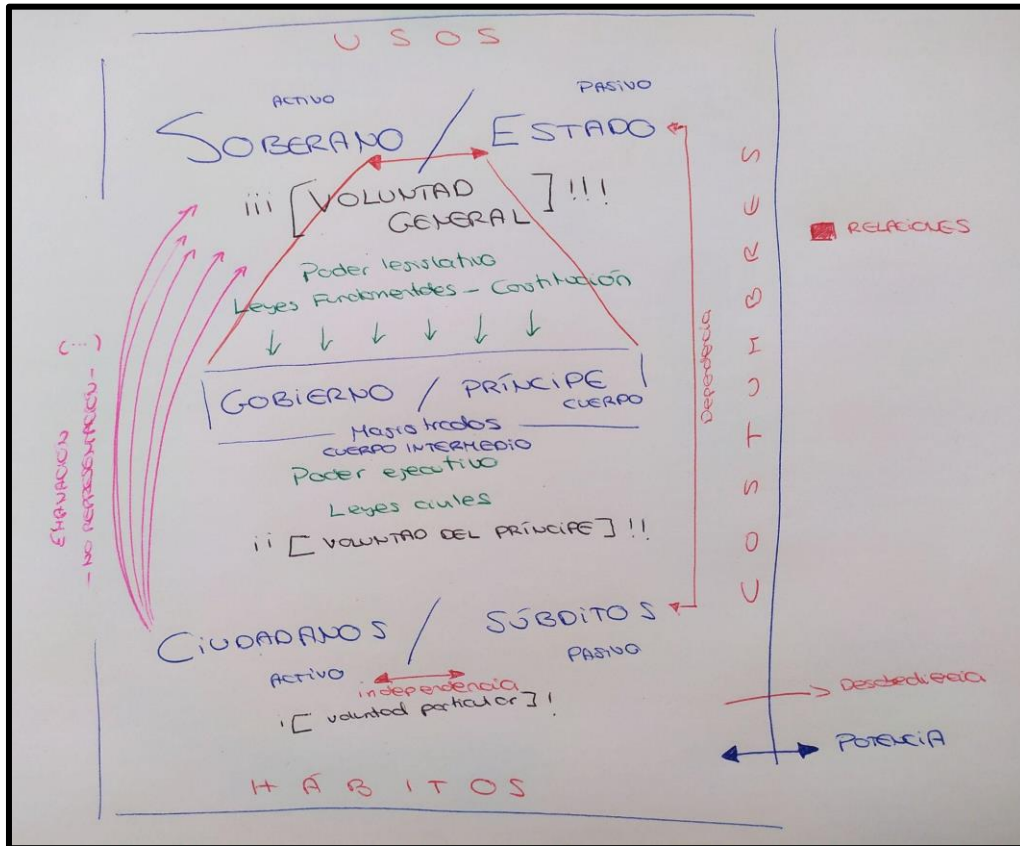 USOS
ACTIVO
PASIVO
SOBERANO / ESTADO
¡¡¡ [VOLUNTAD GENERAL] !!!
Poder legislativo
Leyes Fundamentales - Constitución
GOBIERNO / PRÍNCIPE
CUERPO
Magistrados
CUERPO INTERMEDIO
Poder ejecutivo
Leyes civiles
¡¡ [VOLUNTAD DEL PRÍNCIPE] !!
CIUDADANOS / SÚBDITOS
ACTIVO
PASIVO
independencia
¡[voluntad particular]!
HÁBITOS
EMANACIÓN
- NO REPRESENTACIÓN - (...)
Dependencia
COSTUMBRES
RELACIONES
Desobediencia
POTENCIA